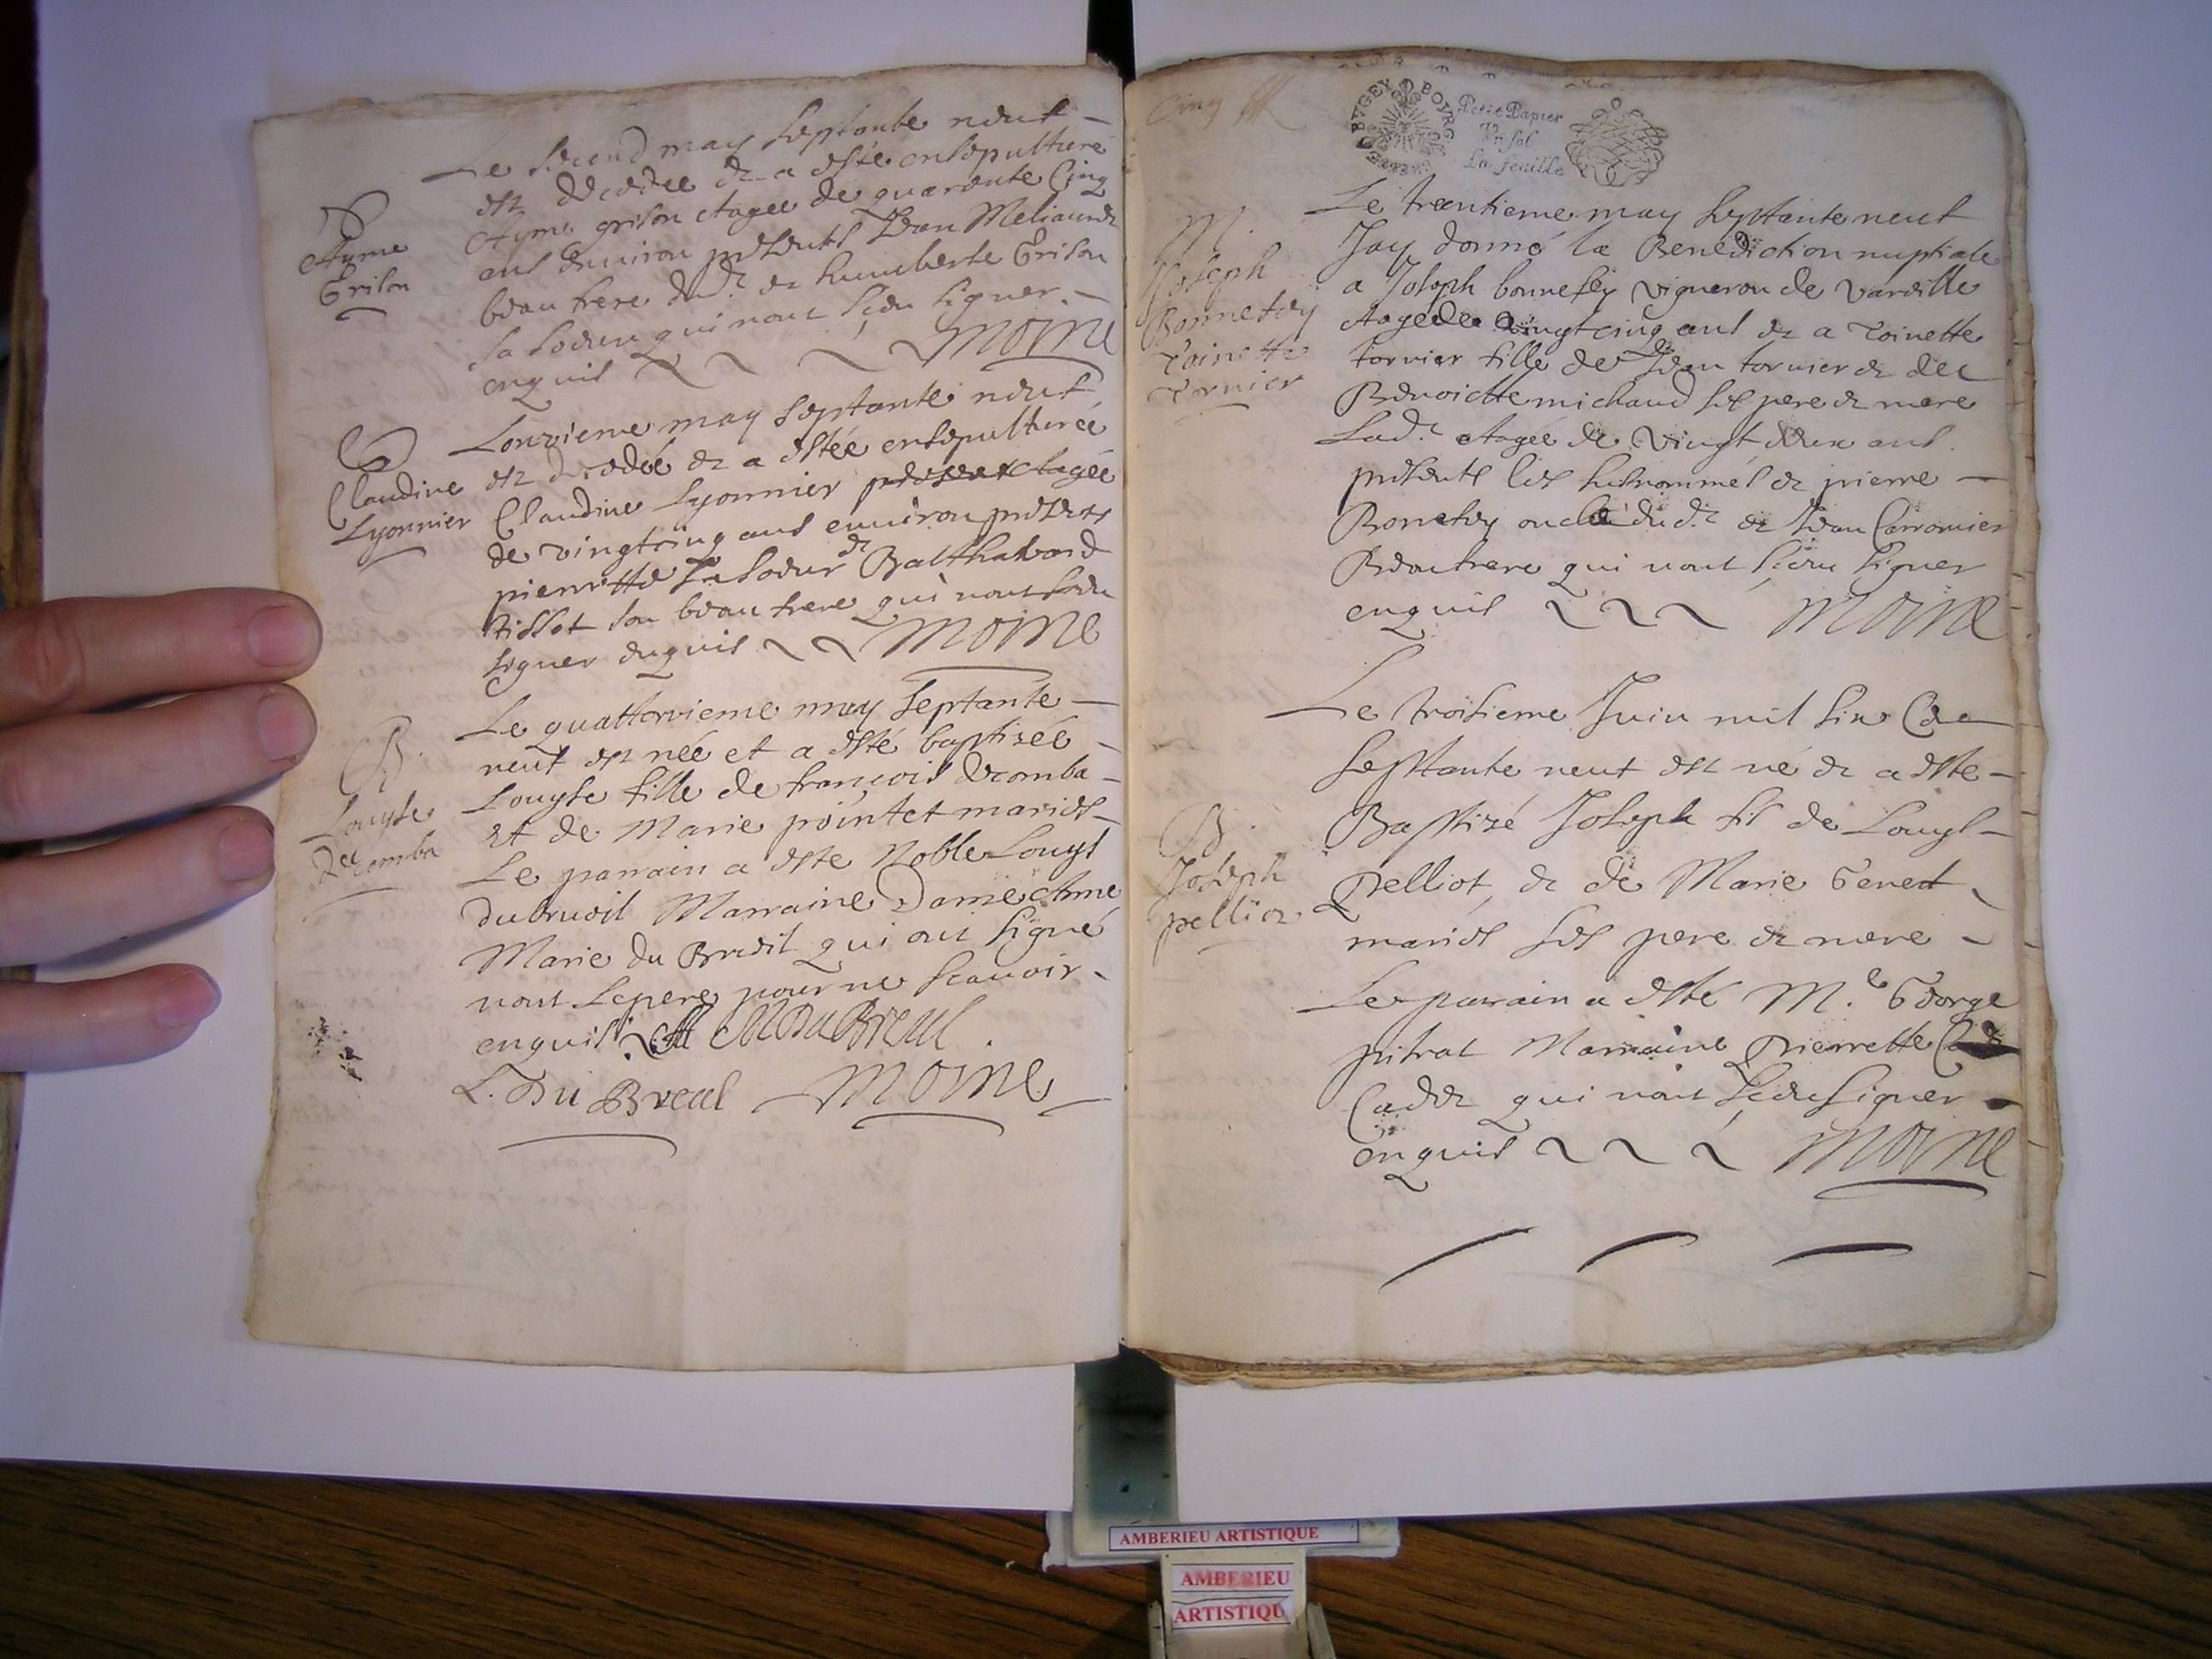 Le second may septante neuf -
est decedee et a esté ensepulturé
Ayme grison aagee de quarante Cinq
ans environ présents Jean Meliand
beau frere dud.t et humberte Grison
sa soeur qui n'ont sçeu signer -
enquis Moine
Ayme
Grison
Lonzieme may septante neuf
est decedée et a estée ensepulturée
Claudine Lyonnier aagée
de vingtcinq ans environ présents
pierrette sa soeur et Balthazard
tissot son beau frere qui n'ont sceu
signer enquis Moine
Claudine
Lyonnier
Le quattorzieme may septante -
neuf est née et a esté baptisée -
Louyse fille de françois decomba -
et de Marie pointet mariés -
Le parrain a esté Noble Louys
dubrueil Marraine Dame Anne
Marie du Brueil qui ont signé
non le pere pour ne scauoir -
enquis AM Du Breul
L. Du Breul Moine
B.
Louyse
Decomba
Cinq
BVGEY BOVRG
Petit Papier
Vn sol
La feuille
Le trentieme may septante neuf
Jay donné la Benediction nuptiale
a Joseph bonnefey vigneron de vareille
aagé de vingtcinq ans et a Toinette
fornier fille de Jean fornier et de
Benoictte michaud ses pere et mere
Lad.e aagée de vingt deux ans
présents les susnommés et pierre -
Bonefey oncle dud.t et Jean Carronier
Beaufrere qui n'ont sçeu signer
enquis Moine
M.
Joseph
Bonnefey
Toinette
Fornier
Le troisieme Juin mil six Cen
septante neuf est né et a esté -
Baptizé Joseph fil de Louys -
Pelliot, et de Marie Genet
mariés ses pere et mere -
Le parrain a esté M.e George
pitrat Marraine Pierrette
Cadet qui n'ont sçeu signer -
enquis Moine
B.
Joseph
pelliot
AMBERIEU ARTISTIQUE
AMBERIEU
ARTISTIQU